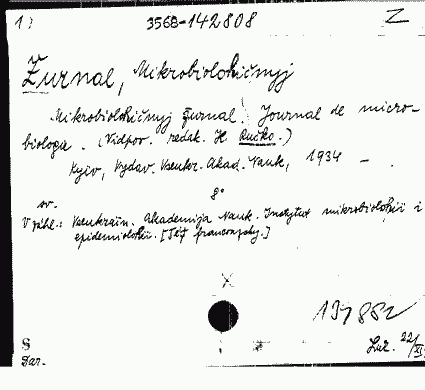 1) 3568-142808 Z
Žurnal, Mikrobiolohičnyj
Mikrobiolohičnyj žurnal. Journal de micro-
biologie. (Vidpov. redak. H. Ručko.)
Kyiv, Vydav. Vseukr. Akad. Nauk, 1934 - .
8°
sv.
V záhl.: Vseukrain. Akademija Nauk. Instytut mikrobiolohii i
epidemiolohii. [Též francouzsky.]
S
Dar.